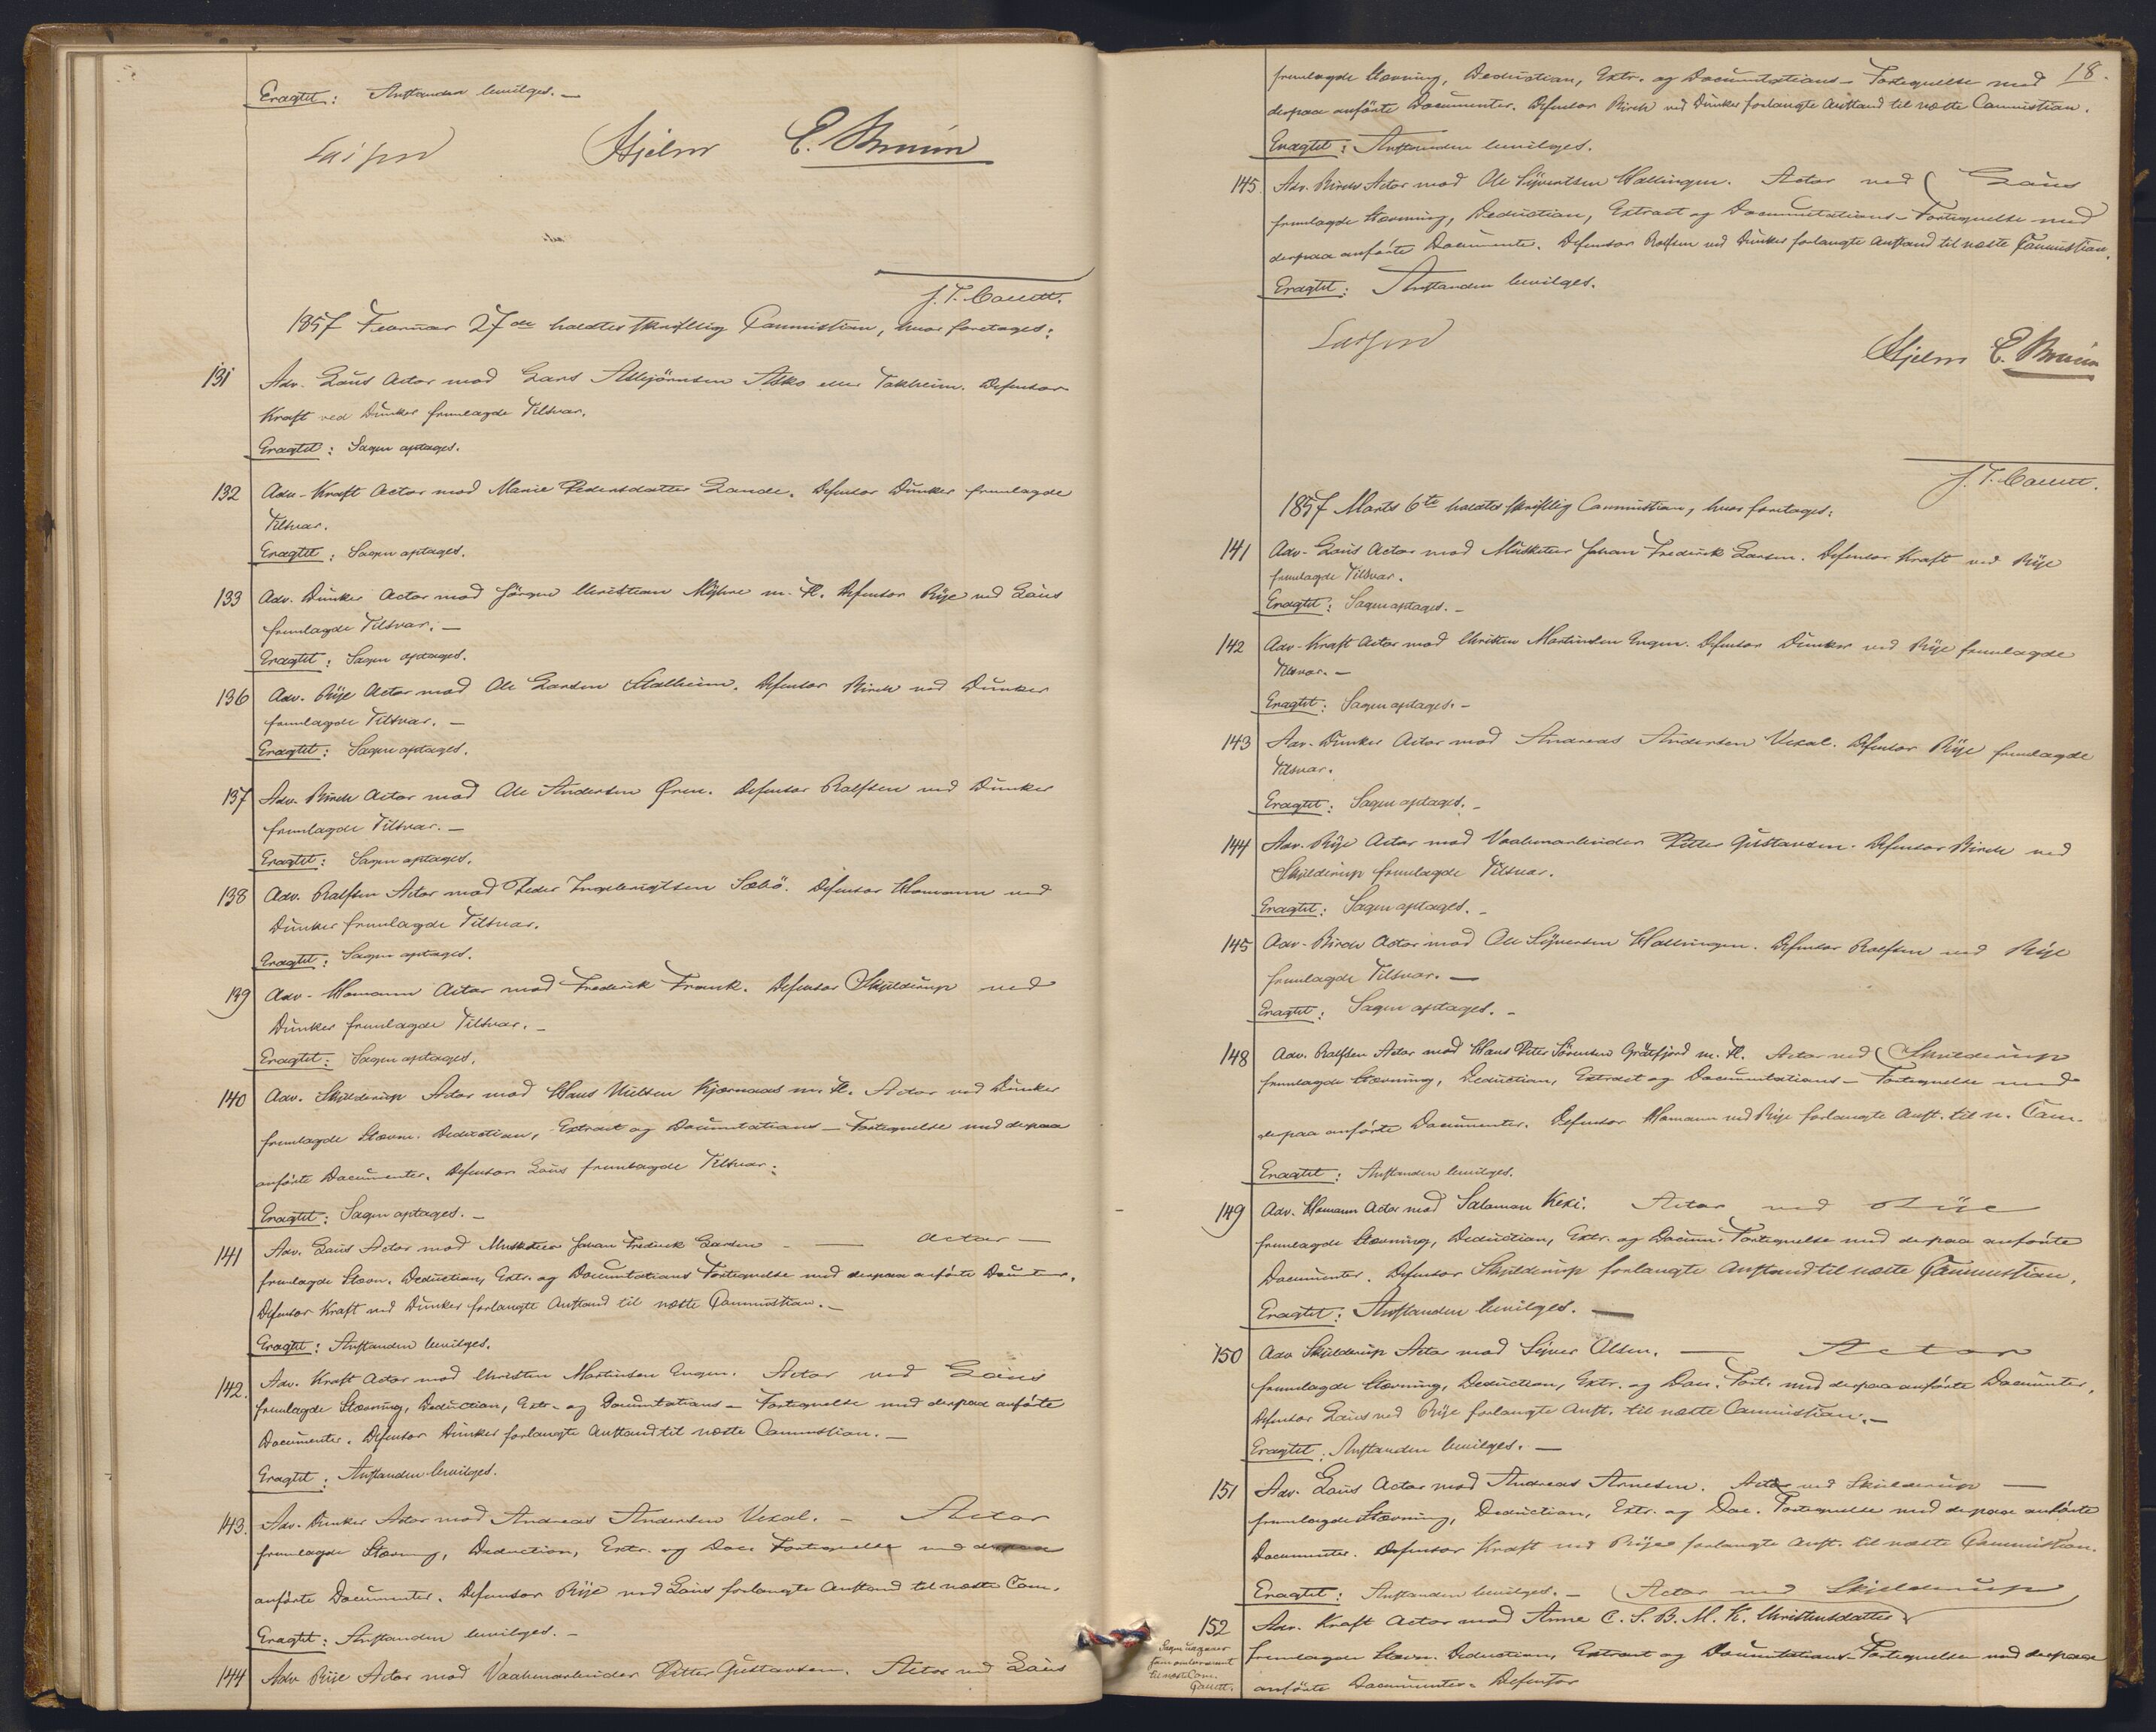 Eragtet: Anstanden bevilges. —
Hjelm E. Bruun
J. T. Cauett.
1857 Februar 27de holdtes skriftlig Commission, hvor foretages:
131 Adv. Lous Actor mod Lars Asbjörnsen Asko eller Takheim. Defensor
Kraft ved Dunker fremlagde Tilsvar.
Eragtet: Sagen optages.
132 Adv. Kraft Actor mod Marie Pedersdatter Lande. Defensor Dunker fremlagde
Tilsvar.
Eragtet: Sagen optages.
133 Adv. Dunker Actor mod Jörgen Christian Myhre m. Fl. Defensor Rÿe ved Lous
fremlagde Tilsvar. —
Eragtet: Sagen optages.
136 Adv. Rÿe Actor mod Ole Larsen Stalheim. Defensor Birch ved Dunker
fremlagde Tilsvar. —
Eragtet: Sagen optages.
137 Adv. Birch Actor mod Ole Andersen Øren. Defensor Rolfsen ved Dunker
fremlagde Tilsvar. —
Eragtet: Sagen optages.
138 Adv. Rolfsen Actor mod Peder Ingebrigtsen Sæbö. Defensor Homann ved
Dunker fremlagde Tilsvar.
Eragtet: Sagen optages.
139 Adv. Homann Actor mod Frederick Frank. Defensor Skjelderup ved
Dunker fremlagde Tilsvar. —
Eragtet: Sagen optages.
140 Adv. Skjelderup Actor mod Hans Nielsen Kjærnaas m. Fl. Actor ved Dunker
fremlagde Stævn. Deduction, Extract og Documentations-Fortegnelse med derpaa
anförte Documenter. Defensor Lous fremlagde Tilsvar.
Eragtet: Sagen optages. —
141 Adv. Lous Actor mod Musketeer Johan Frederick Larsen — — Actor —
fremlagde Stævn. Deduction, Extr. og Documentations Fortegnelse med derpaa anförte Documenter.
Defensor Kraft ved Dunker forlangte Anstand til næste Commission. —
Eragtet: Anstanden bevilges.
142. Adv. Kraft Actor mod Christen Martinsen Engen. Actor ved Lous
fremlagde Stævning, Deduction, Extr. og Documentations-Fortegnelse med derpaa anförte
Documenter. Defensor Dunker forlangte Anstand til næste Commission. —
Eragtet: Anstanden bevilges.
143. Adv. Dunker Actor mod Andreas Andersen Vexal. — Actor
fremlagde Stævning, Deduction, Extr. og Doc. Fortegnelse med derpaa
anförte Documenter. Defensor Rÿe ved Lous forlangte Anstand til næste Com.
Eragtet: Anstanden bevilges. —
144 Adv. Rÿe Actor mod Vaabenarbeider Petter Gustavsen. Actor ved Lous
18.
fremlagde Stævning, Deduction, Extr. og Documentations-Fortegnelse med
derpaa anförte Documenter. Defensor Birch ved Dunker forlangte Anstand til næste Commission.
Eragtet: Anstanden bevilges.
145. Adv. Birch Actor mod Ole Sÿvertsen Hallingen. Actor ved Lous
fremlagde Stævning, Deduction, Extract og Documentations-Fortegnelse med
derpaa anförte Documenter. Defensor Rolfsen ved Dunker forlangte Anstand til næste Commission.
Eragtet: Anstanden bevilges.
Hjelm E. Bruun
J. T. Cauett.
1857 Marts 6te holdtes skriftlig Commission, hvor foretages:
141 Adv. Lous Actor mod Musketeer Johan Frederick Larsen. Defensor Kraft ved Rÿe
fremlagde Tilsvar.
Eragtet: Sagen optages. —
142 Adv. Kraft Actor mod Christen Martinsen Engen. Defensor Dunker ved Rÿe fremlagde
Tilsvar. —
Eragtet: Sagen optages. —
143 Adv. Dunker Actor mod Andreas Andersen Vexal. Defensor Rÿe fremlagde
Tilsvar.
Eragtet: Sagen optages. —
144 Adv. Rÿe Actor mod Vaabenarbeider Petter Gustavsen. Defensor Birch ved
Skjelderup fremlagde Tilsvar.
Eragtet: Sagen optages. —
145 Adv. Birch Actor mod Ole Sÿversen Hallingen. Defensor Rolfsen ved Rÿe
fremlagde Tilsvar. —
Eragtet: Sagen optages. —
148 Adv. Rolfsen Actor mod Hans Peter Sörensen Gråtfjord m. Fl. Actor ved Skjelderup
fremlagde Stævning, Deduction, Extract og Documentations-Fortegnelse med
derpaa anförte Documenter. Defensor Homann ved Rÿe forlangte Anst. til n. Com.
Eragtet: Anstanden bevilges.
149 Adv. Homann Actor mod Salamon Kexi. Actor ved Rÿe
fremlagde Stævning, Deduction, Extr. og Docum. Fortegnelse med derpaa anförte
Documenter. Defensor Skjelderup forlangte Anstand til næste Commission.
Eragtet: Anstanden bevilges. —
150 Adv Skjelderup Actor mod Siver Olsen. — Actor
fremlagde Stævning, Deduction, Extr. og Doc. Fort. med derpaa anförte Documenter,
Defensor Lous ved Rÿe forlangte Anst. til næste Commission. —
Eragtet: Anstanden bevilges. —
151 Adv. Lous Actor mod Andreas Arnesen. Actor ved Skjelderup —
fremlagde Stævning, Deduction, Extr. og Doc. Fortegnelse med derpaa anförte
Documenter. Defensor Kraft ved Rÿe forlangte Anst. til næste Commission.
Eragtet: Anstanden bevilges. — Actor ved Skjelderup
152 Adv. Kraft Actor mod Anne C. S. B. M. K. Christensdatter
fremlagde Stævn. Deduction, Extract og Documentations-Fortegnelse med derpaa
anförte Documenter. Defensor
Sagen
til næste Com.
Cauett.